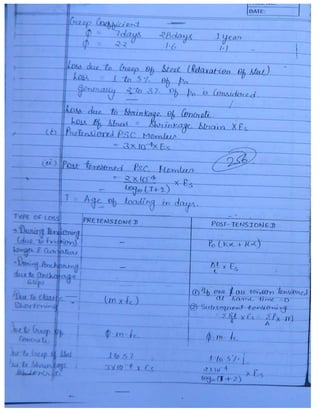 DATE:
Creep Coefficient
φ = 7days 28days 1 year
φ = 2.2 1.6 1.1
Loss due to Creep of Steel (Relaxation of steel)
Loss = 1 to 5% of
generally 2 to 3% of is Considered
Loss due to Shrinkage of Concrete
Loss of Stress = Shrinkage Strain X Es
(i) Pretensioned PSC Member
= 3x10⁻⁴x Es
256
(ii) Post tensioned PSC Member
= 2x10⁻⁴ / log₁₀(T+2) x Es
T = Age of loading in days.
TYPE OF LOSS PRETENSIONED POST-TENSIONED
During Tensioning
(due to Friction) - P₀(Kx + μα)
length & Curvature
During Anchoring
due to Anchorage - Δl/L x Es
slips
Due to Elastic (m x fc) ① If one / all tendon tensioned
Shortening at same time = 0
② Subsequent tensioning
Due to Creep of φ.m.fc φ.m.fc
Concrete.
Due to Creep of Steel 1 to 5% 1 to 5%
Due to Shrinkage 3x10⁻⁴ x Es 2x10⁻⁴ / log₁₀(T+2) x Es